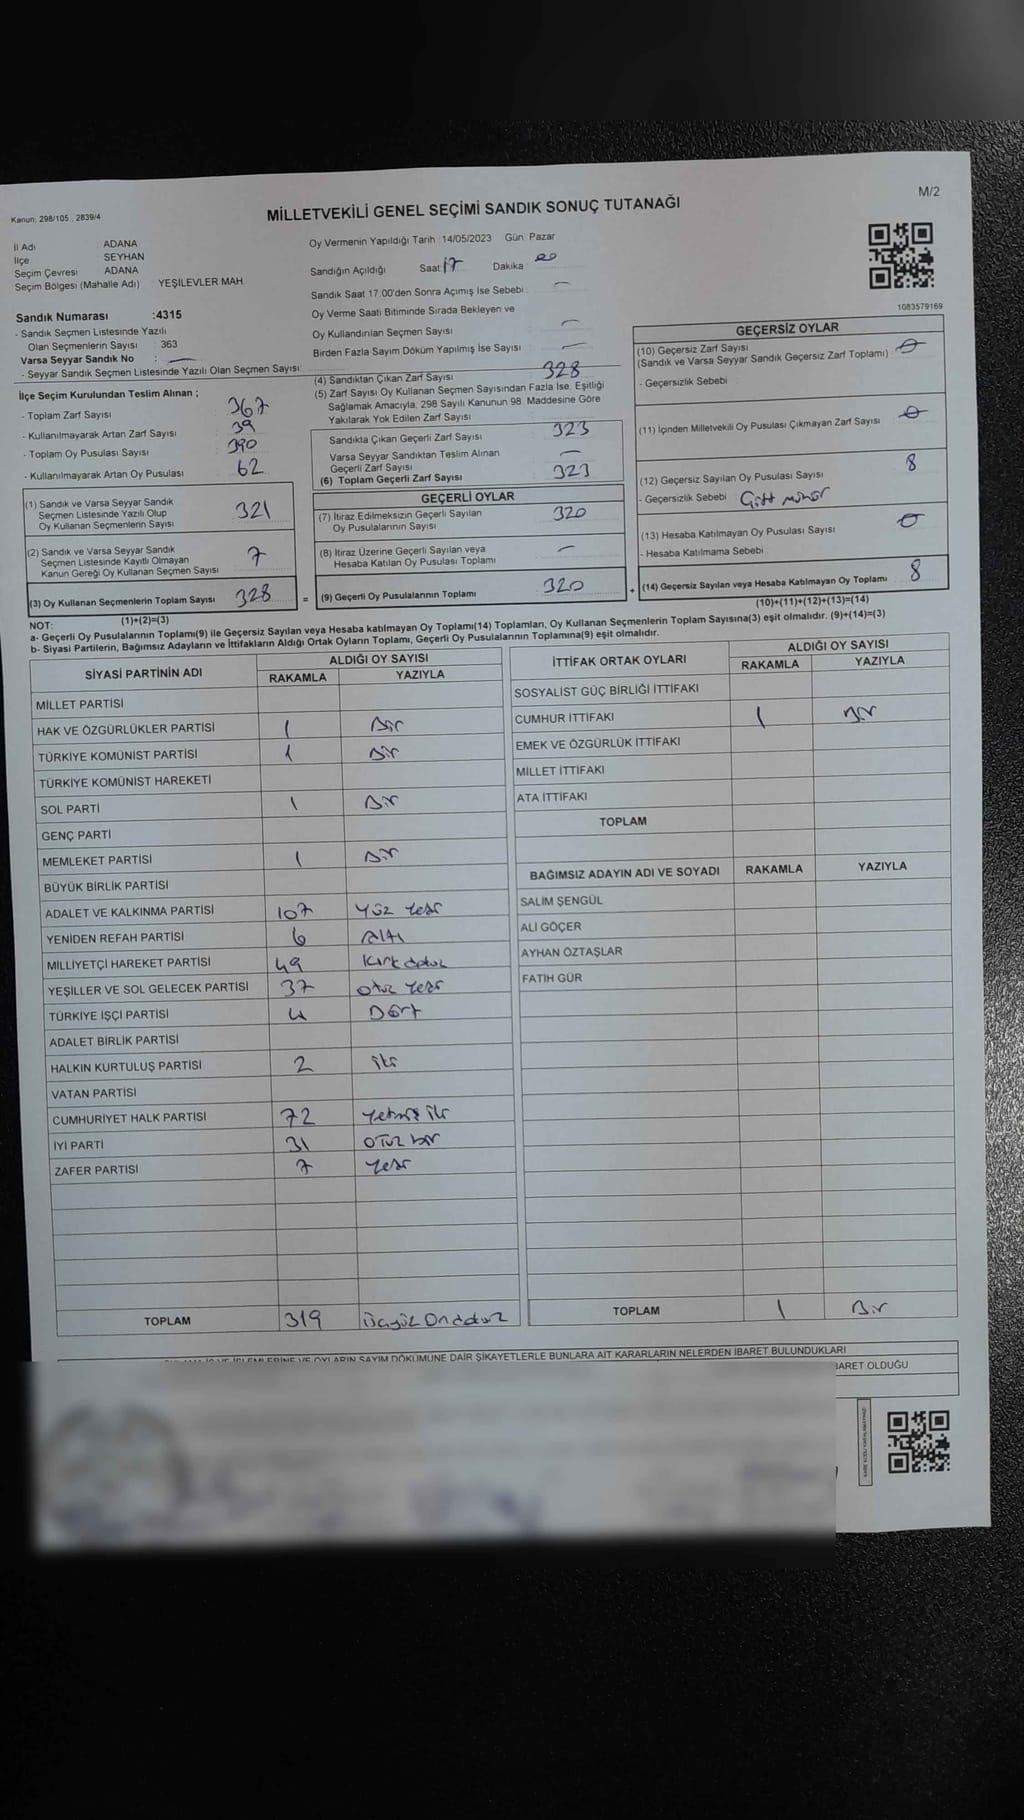 Kanun: 298/105 , 2839/4
MİLLETVEKİLİ GENEL SEÇİMİ SANDIK SONUÇ TUTANAĞI
M/2
İl Adı ADANA
İlçe SEYHAN
Seçim Çevresi ADANA
Seçim Bölgesi (Mahalle Adı) YEŞİLEVLER MAH
Sandık Numarası :4315
- Sandık Seçmen Listesinde Yazılı
Olan Seçmenlerin Sayısı : 363
Varsa Seyyar Sandık No : —
- Seyyar Sandık Seçmen Listesinde Yazılı Olan Seçmen Sayısı
İlçe Seçim Kurulundan Teslim Alınan ;
- Toplam Zarf Sayısı 367
- Kullanılmayarak Artan Zarf Sayısı 39
- Toplam Oy Pusulası Sayısı 390
- Kullanılmayarak Artan Oy Pusulası 62
(1) Sandık ve Varsa Seyyar Sandık
Seçmen Listesinde Yazılı Olup
Oy Kullanan Seçmenlerin Sayısı 321
(2) Sandık ve Varsa Seyyar Sandık
Seçmen Listesinde Kayıtlı Olmayan
Kanun Gereği Oy Kullanan Seçmen Sayısı 7
(3) Oy Kullanan Seçmenlerin Toplam Sayısı 328
(1)+(2)=(3)
Oy Vermenin Yapıldığı Tarih :14/05/2023 Gün: Pazar
Sandığın Açıldığı Saat 17 Dakika 00
Sandık Saat 17.00'den Sonra Açımış İse Sebebi : —
Oy Verme Saati Bitiminde Sırada Bekleyen ve
Oy Kullandırılan Seçmen Sayısı —
Birden Fazla Sayım Döküm Yapılmış İse Sayısı —
(4) Sandıktan Çıkan Zarf Sayısı 328
(5) Zarf Sayısı Oy Kullanan Seçmen Sayısından Fazla İse, Eşitliği
Sağlamak Amacıyla, 298 Sayılı Kanunun 98. Maddesine Göre
Yakılarak Yok Edilen Zarf Sayısı
Sandıkta Çıkan Geçerli Zarf Sayısı 323
Varsa Seyyar Sandıktan Teslim Alınan
Geçerli Zarf Sayısı —
(6) Toplam Geçerli Zarf Sayısı 323
GEÇERLİ OYLAR
(7) İtiraz Edilmeksizin Geçerli Sayılan
Oy Pusulalarının Sayısı 320
(8) İtiraz Üzerine Geçerli Sayılan veya
Hesaba Katılan Oy Pusulası Toplamı —
= (9) Geçerli Oy Pusulalarının Toplamı 320
1083579169
GEÇERSİZ OYLAR
(10) Geçersiz Zarf Sayısı
(Sandık ve Varsa Seyyar Sandık Geçersiz Zarf Toplamı) 0
- Geçersizlik Sebebi :
(11) İçinden Milletvekili Oy Pusulası Çıkmayan Zarf Sayısı 0
(12) Geçersiz Sayılan Oy Pusulası Sayısı 8
- Geçersizlik Sebebi
(13) Hesaba Katılmayan Oy Pusulası Sayısı 0
- Hesaba Katılmama Sebebi :
+ (14) Geçersiz Sayılan veya Hesaba Katılmayan Oy Toplamı 8
(10)+(11)+(12)+(13)=(14)
NOT:
a- Geçerli Oy Pusulalarının Toplamı(9) ile Geçersiz Sayılan veya Hesaba katılmayan Oy Toplamı(14) Toplamları, Oy Kullanan Seçmenlerin Toplam Sayısına(3) eşit olmalıdır. (9)+(14)=(3)
b- Siyasi Partilerin, Bağımsız Adayların ve İttifakların Aldığı Ortak Oyların Toplamı, Geçerli Oy Pusulalarının Toplamına(9) eşit olmalıdır.
SİYASİ PARTİNİN ADI ALDIĞI OY SAYISI
RAKAMLA YAZIYLA
MİLLET PARTİSİ
HAK VE ÖZGÜRLÜKLER PARTİSİ 1 Bir
TÜRKİYE KOMÜNİST PARTİSİ 1 Bir
TÜRKİYE KOMÜNİST HAREKETİ
SOL PARTİ 1 Bir
GENÇ PARTİ
MEMLEKET PARTİSİ 1 Bir
BÜYÜK BİRLİK PARTİSİ
ADALET VE KALKINMA PARTİSİ 107 Yüz Yedi
YENİDEN REFAH PARTİSİ 6 Altı
MİLLİYETÇİ HAREKET PARTİSİ 49 Kırk dokuz
YEŞİLLER VE SOL GELECEK PARTİSİ 37 otuz Yedi
TÜRKİYE İŞÇİ PARTİSİ 4 Dört
ADALET BİRLİK PARTİSİ
HALKIN KURTULUŞ PARTİSİ 2 iki
VATAN PARTİSİ
CUMHURİYET HALK PARTİSİ 72 Yetmiş iki
İYİ PARTİ 31 OTuz bir
ZAFER PARTİSİ 7 Yedi
TOPLAM 319 Üçyüz Ondokuz
İTTİFAK ORTAK OYLARI ALDIĞI OY SAYISI
RAKAMLA YAZIYLA
SOSYALİST GÜÇ BİRLİĞİ İTTİFAKI
CUMHUR İTTİFAKI 1 Bir
EMEK VE ÖZGÜRLÜK İTTİFAKI
MİLLET İTTİFAKI
ATA İTTİFAKI
TOPLAM
BAĞIMSIZ ADAYIN ADI VE SOYADI RAKAMLA YAZIYLA
SALİM ŞENGÜL
ALİ GÖÇER
AYHAN ÖZTAŞLAR
FATİH GÜR
TOPLAM 1 Bir
İŞLEMLERİNE VE OYLARIN SAYIM DÖKÜMÜNE DAİR ŞİKAYETLERLE BUNLARA AİT KARARLARIN NELERDEN İBARET BULUNDUKLARI
İBARET OLDUĞU